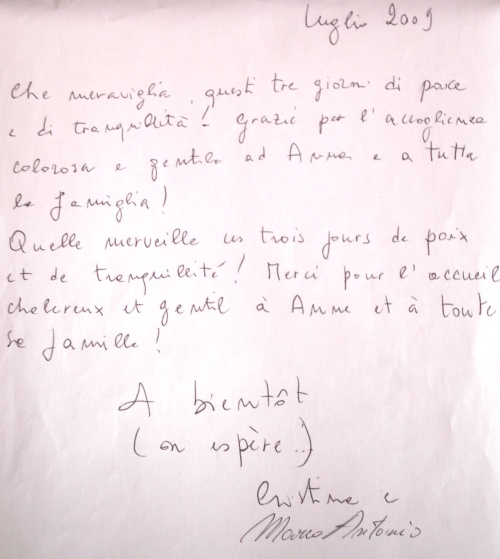 Luglio 2009
Che meraviglia, questi tre giorni di pace
e di tranquillità! Grazie per l'accoglienza
calorosa e gentile ad Anna e a tutta
la famiglia!
Quelle merveille ces trois jours de paix
et de tranquilleité! Merci pour l'accueil
chalereux et gentil à Anne et à toute
sa famille!
A bientôt
(on espère..)
Cristina e
Marco Antonio